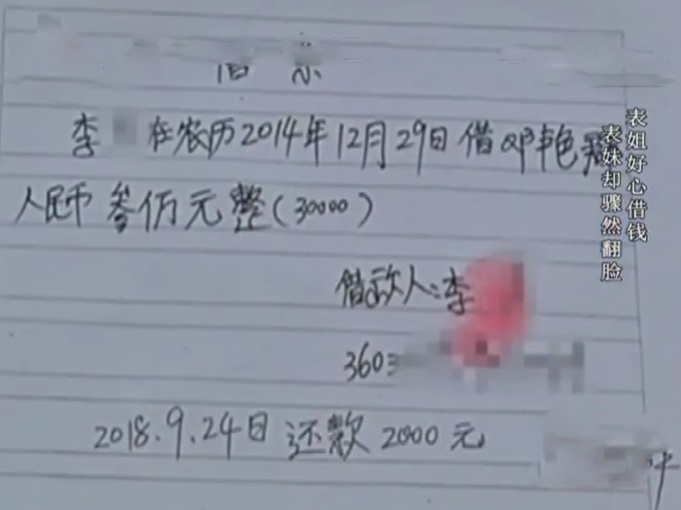 借条
李 在农历2014年12月29日借邓艳
人民币叁仟元整(30000)
借款人:李
3603
2018.9.24日还款2000元
表姐好心借钱
表妹却骤然翻脸